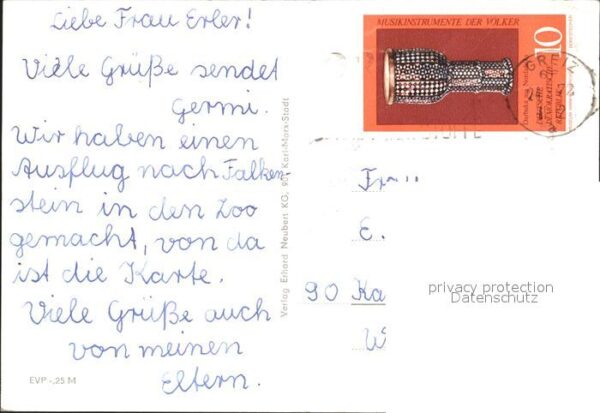 Liebe Frau Erler!
Viele Grüße sendet
Germi.
Wir haben einen
Ausflug nach Falken,
stein in den Zoo
gemacht, von da
ist die Karte.
Viele Grüße auch
von meinen
Eltern.
EVP -,25 M
Verlag Erhard Neubert KG, 90 Karl-Marx-Stadt
MUSIKINSTRUMENTE DER VÖLKER
10
Darbuka
DEUTSCHE
DEMOKRATISCHE
GREIZ
Frau
E.
90 Ka
W
privacy protection
Datenschutz